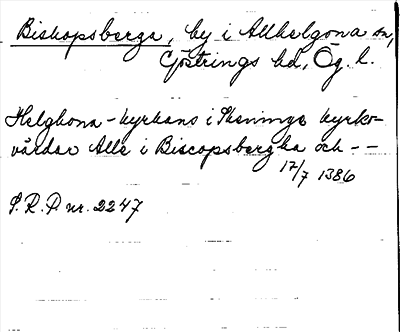 Biskopsberga, by i Allhelgona sn,
Göstrings hd, Ög. l.
Helghona-kyrkans i Skeninge kyrko-
vårdar Alle i Biscopsbergha och - -
17/7 1386
S.R.P. nr. 2247